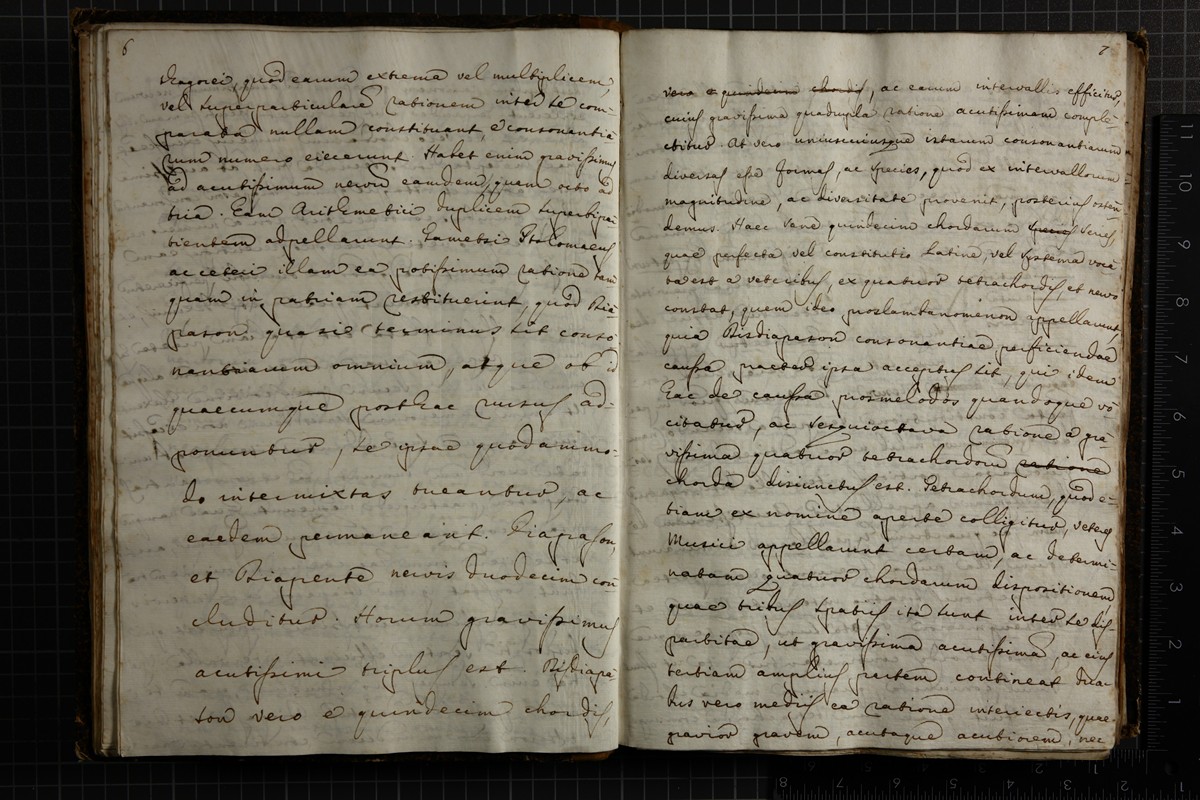 6
thagorei, quod earum extrema vel multiplicem,
vel superparticularem rationem inter se com-
parata nullam constituant, e consonantia-
rum numero eiecerunt. Habet enim gravissimus
ad acutissimum nervum eamdem, quem octo ad
tria. Eam Arithmetici duplicem superbipar-
tientem adpellarunt. Tametsi Ptolomaeus
ac ceteri illam ea potissimum ratione tam-
quam in patriam restituerint, quod Dia-
pason quasi terminus sit conso-
nantiarum omnium, atque ob id
quaecumque posthac rursus ad-
ponuntur, se ipsae quodammo-
do intermixtas tueantur, ac
eaedem permaneant. Diapason,
et Diapente nervis duodecim con-
cluditur. Horum gravissimus
acutissimi triplus est. Bisdiapa-
son vero e quindecim chordis,
7
vero e quindecim chordis, ac earum intervallis efficitur,
cuius gravissima quadrupla ratione acutissimam comple-
ctitur. At vero uniuscuiusque istarum consonantiarum
diversas esse formas, ac species, quod ex intervallorum
magnitudine, ac diversitate provenit, posterius osten-
demus. Haec sane quindecim chordarum series,
quae perfecta vel constitutio Latine, vel systema voca-
ta est a veteribus, ex quatuor tetrachordis, et nervo
constat, quem ideo proslambanomenon appellarunt,
quia Bisdiapason consonantiae perficiendae
caussa praeter ipsa acceptus sit, qui idem
hac de caussa prosmelodos quandoque vo-
citatur, ac sesquioctava ratione a gra-
vissima quatuor tetrachordorum ratione
chorda disiunctus est. Tetrachordum, quod e-
tiam ex nomine aperte colligitur, veteres
Musici appellarunt certam, ac determi-
natam quatuor chordarum dispositionem,
quae tribus spatiis ita sunt inter se dis-
partitae, ut gravissima acutissimam, ac eius
tertiam amplius partem contineat dua-
bus vero mediis ea ratione interiectis, quae
gravior gravem, acutaque acutiorem, nec